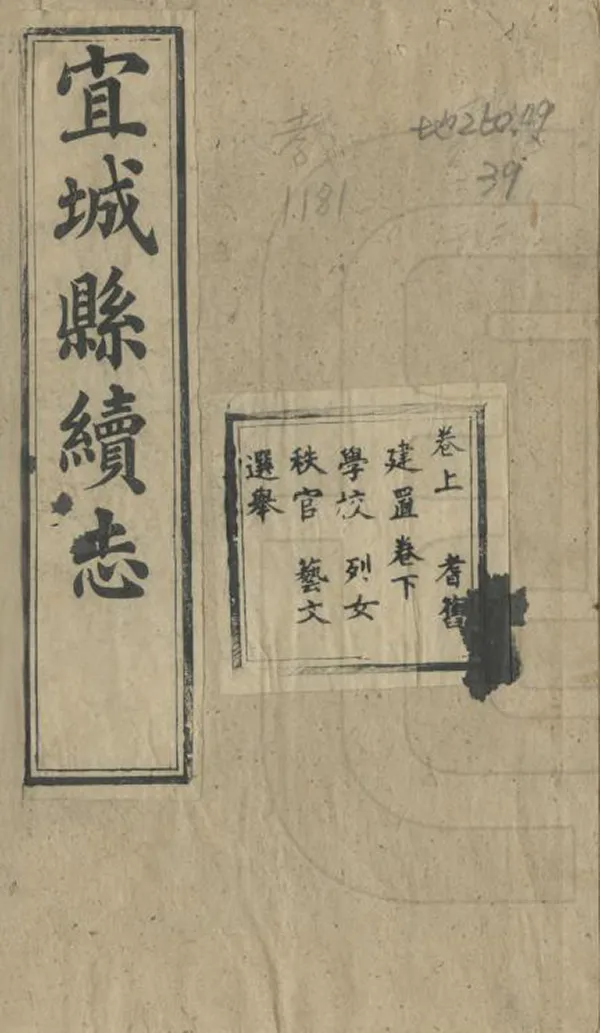 宜城縣續志
卷上 耆舊
建置 卷下
學校 列女
秩官 藝文
選舉
地260.49
39
1181